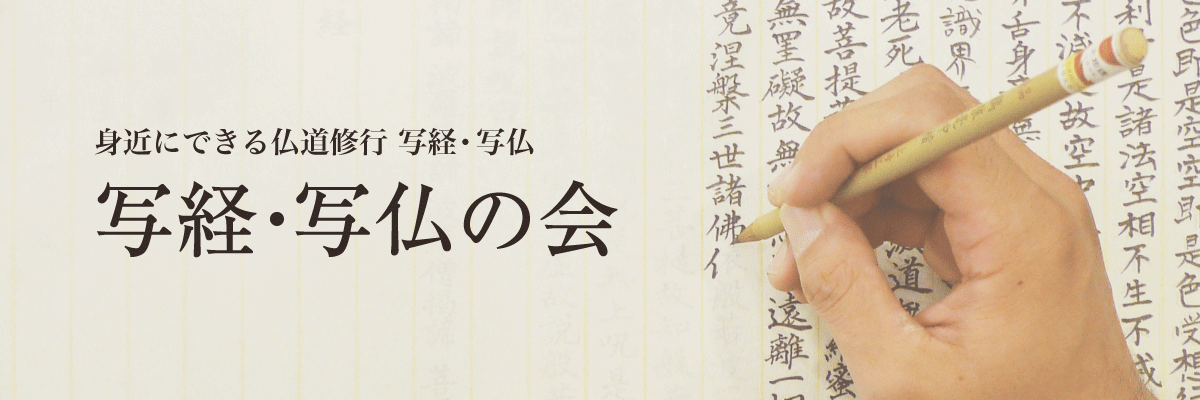 身近にできる仏道修行 写経・写仏
写経・写仏の会
色即是空空即是色受想
利 是諸法空相不生不滅
不減 故空中
舌身 無
識界
老死 道
故菩提 蜜
無罣礙故無 遠離一
竟涅槃三世諸佛